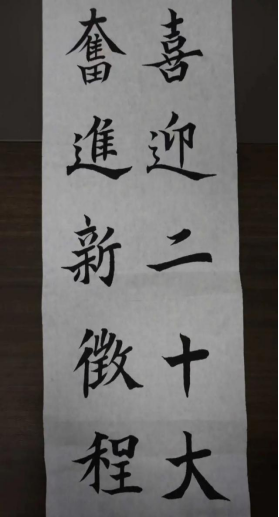 喜迎二十大
奮進新徵程